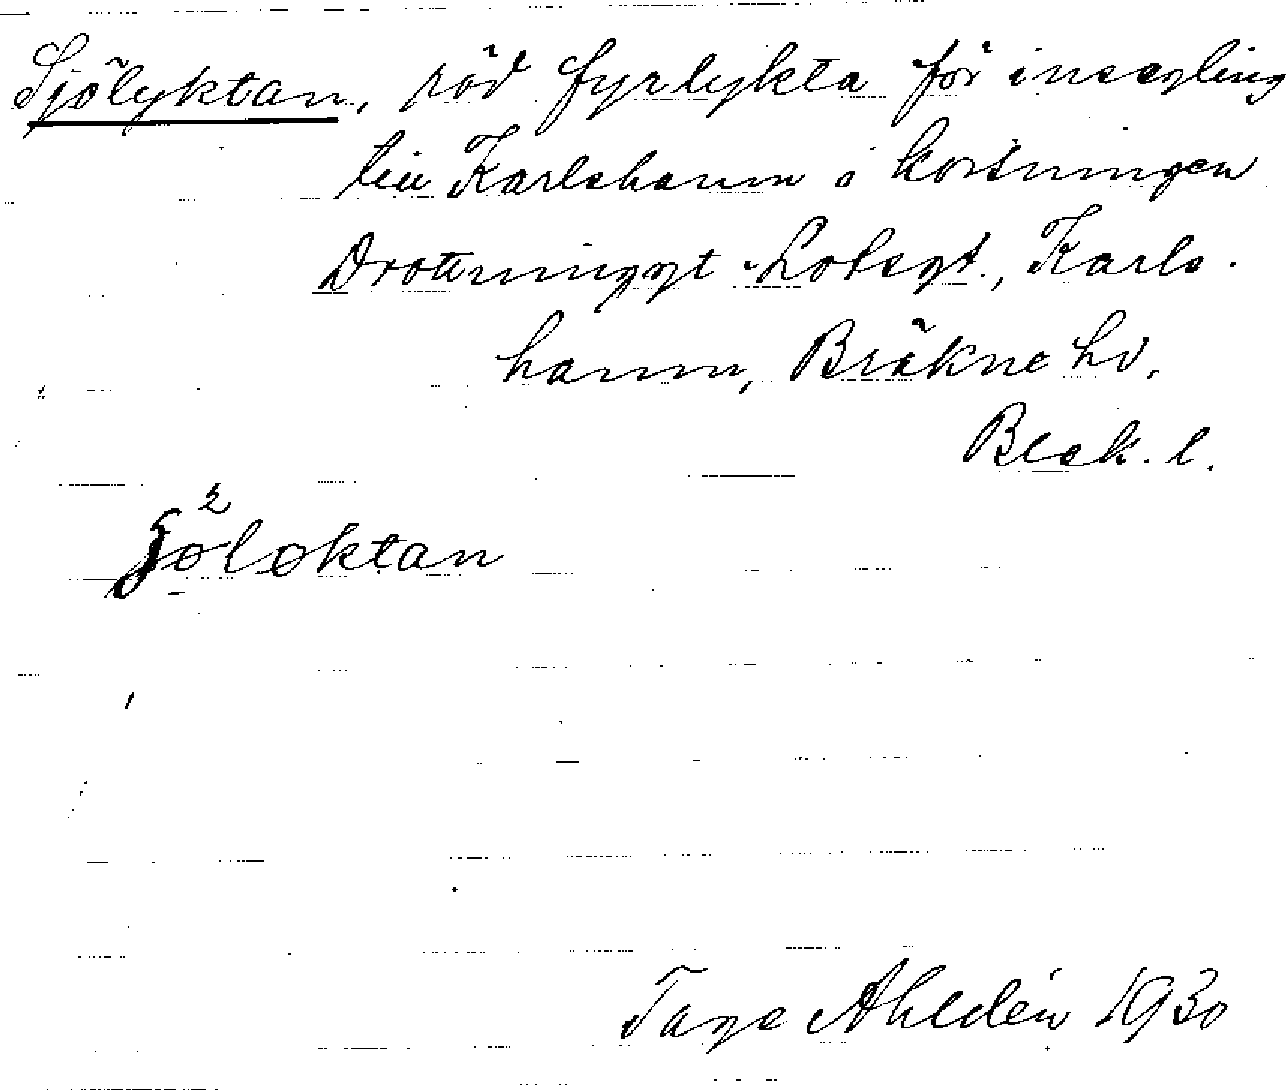 Sjölyktan, röd fyrlykta för insegling
till Karlshamn i korsningen
Drottninggt - Lotsgt., Karls-
hamn, Bräkne hd,
Blek. l.
Tage Ahldén 1930